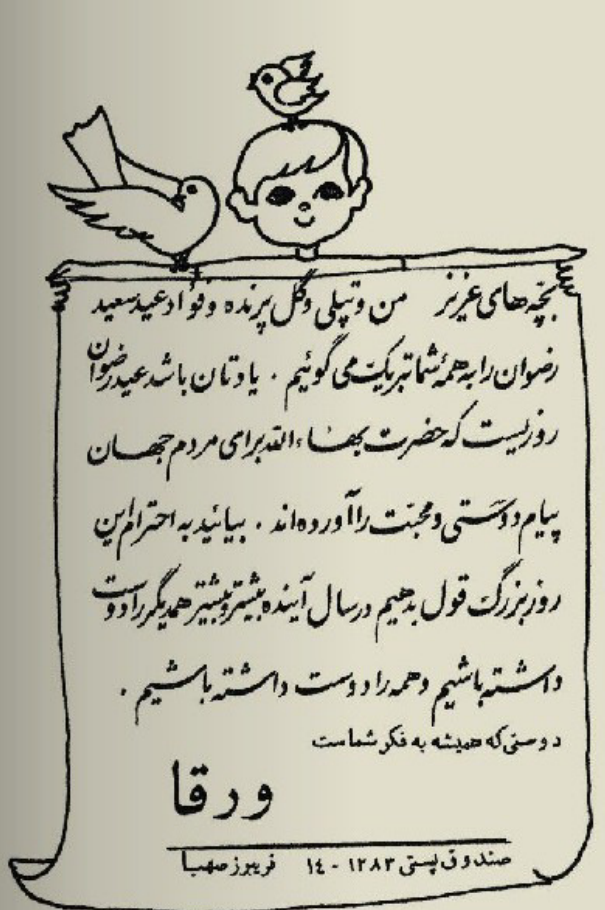 بچّه‌های عزیز من و تپلی و گل پرنده و فؤاد عید سعید
رضوان را به همهٔ شما تبریک می گوئیم . یادتان باشد عید رضوان
روزیست که حضرت بهاءالله برای مردم جهان
پیام دوستی و محبّت را آورده‌اند . بیائید به احترام این
روز بزرگ قول بدهیم در سال آینده بیشتر و بیشتر همدیگر را دوست
داشته باشیم و همه را دوست داشته باشیم .
دوستی که همیشه به فکر شماست
ورقا
صندوق پستی ۱۲۸۳ - ۱٤ فریبرز صهبا